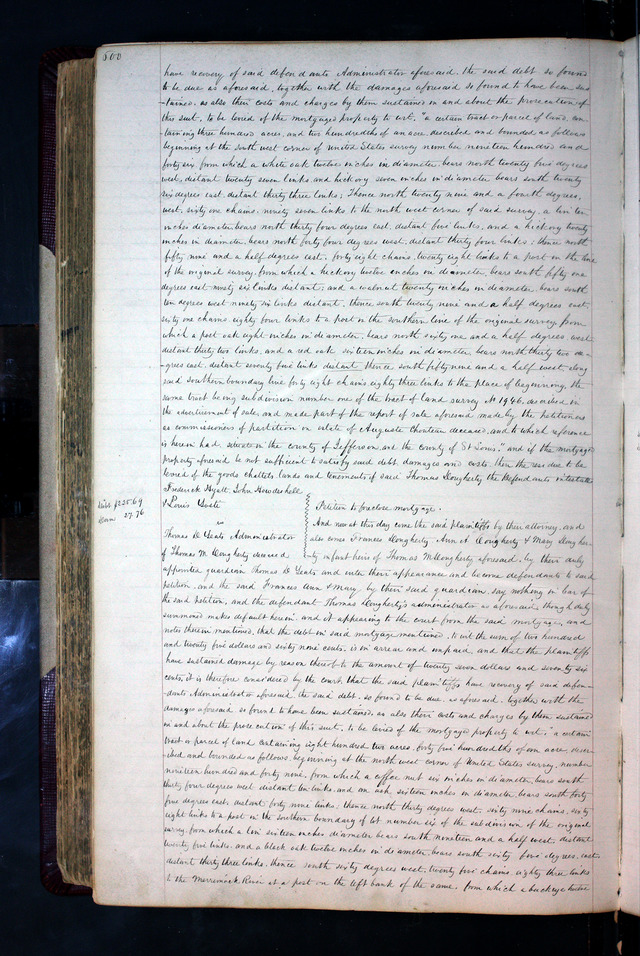 600
have recovery of said defendants Administrator aforesaid, the said debt so found
to be due as aforesaid, together with the damages aforesaid so found to have been sus
-tained, as also their costs and charges by them sustained in and about the prosecution of
this suit, to be levied of the mortgaged property to wit, "a certain tract or parcel of land, con
taining three hundred acres, and two hundredths of an acre, described and bounded, as follows
beginning at the south west corner of United States survey number nineteen hundred and
forty six, from which a white oak twelve inches in diameter, bears north twenty five degrees
west, distant twenty seven links, and hickory seven inches in diameter bears south twenty
six degrees east, distant thirty three links; Thence north twenty nine and a fourth degrees,
west, sixty one chains, ninety seven links to the north west corner of said survey, a lin ten
inches diameter, bears north thirty four degrees east, distant five links, and a hickory twenty
inches in diameter, bears north forty four degrees west, distant thirty links; thence north
fifty nine and a half degrees east, forty eight chains, twenty eight links to a post in the line
of the original survey, from which a hickory twelve inches in diameter, bears south fifty one
degrees east ninety six links distant, and a walnut twenty inches in diameter, bears south
ten degrees west ninety six links distant, thence south twenty nine and a half degrees east,
sixty one chains eighty four links to a post in the southern line of the original survey from
which a post oak eight inches in diameter, bears north sixty one, and a half degrees west
distant thirty two links, and a red oak sixteen inches in diameter bears north thirty two de-
-grees east, distant seventy five links distant thence south fifty nine and a half west along
said southern boundary line forty eight chains eighty three links to the place of beginning, the
same tract being subdivision number one of the tract of land survey No 1946, as described in
the advertisement of sale, and made part of the report of sale aforesaid made by the petitioners
as commissioners of partition in estate of Auguste Chouteau deceased, and to which reference
is herein had, situate in the county of Jefferson and the county of St Louis: and if the mortgaged
property aforesaid be not sufficient to satisfy said debt, damages and costs, then the residue to be
levied of the goods chattels, lands and tenements of said Thomas Dougherty the defendants intestate
Frederick Hyatt, John Howdeshell
& Louis Yosti
Debt $225.69
Dam 27.76
Petition to foreclose mortgage.
vs
And now at this day come the said plaintiffs by their attorney, and
Thomas D. Yeats Administrator
also comes Frances Dougherty, Ann A Dougherty & Mary Dougher-
of Thomas M Dougherty deceased
-ty infant heirs of Thomas M Dougherty aforesaid, by their duly
appointed guardian Thomas D Yeats and enter their appearance and become defendants to said
petition, and the said Frances Ann & Mary, by their said guardian, say nothing in bar of
the said petition, and the defendant Thomas Dougherty's administrator as aforesaid though duly
summoned makes default herein, and it appearing to the court from the said mortgage, and
notes therein mentioned, that the debt in said mortgage mentioned, to wit the sum of two hundred
and twenty five dollars and sixty nine cents, is in arrear and unpaid, and that the plaintiffs
have sustained damage by reason thereof to the amount of twenty seven dollars and seventy six
cents, it is therefore considered by the court, that the said plaintiffs have recovery of said defen-
-dants Administrator aforesaid the said debt, so found to be due, as aforesaid, together with the
damages aforesaid so found to have been sustained, as also their costs and charges by them sustained
in and about the prosecution of this suit, to be levied of the mortgaged property to wit, "a certain
tract or parcel of land containing eight hundred two acres, forty five hundredths of an acre, descri-
-bed and bounded as follows, beginning at the north west corner of United States survey, number
nineteen hundred and forty nine, from which a coffee nut six inches in diameter, bears south
thirty four degrees west distant ten links, and an ash sixteen inches in diameter, bears south forty
five degrees east, distant forty nine links; thence north thirty degrees west, sixty nine chains, sixty
eight links to a post in the southern boundary of lot number six of the subdivision of the original
survey, from which a lin sixteen inches diameter bears south nineteen and a half west, distant
twenty five links, and a black oak twelve inches in diameter, bears south sixty five degrees, east
distant thirty three links, thence south sixty degrees west, twenty five chains eighty three links
to the Merrimack River at a post on the left bank of the same, from which a buckeye twelve